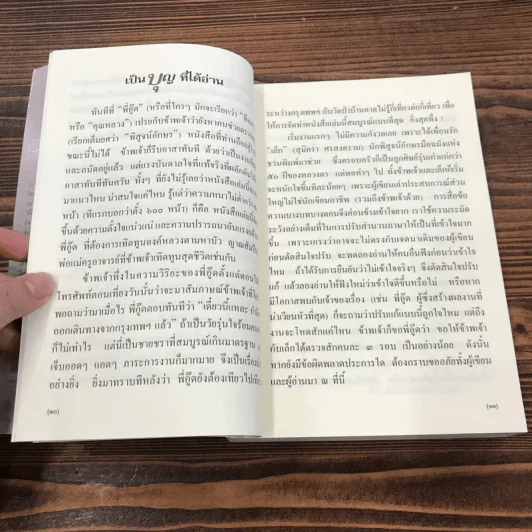 เป็น บุญ ที่ได้อ่าน
ทันทีที่ “พี่อู๊ด” (หรือที่ใครๆ มักจะเรียกว่า
หรือ “คุณหลวง”) เปรยกับข้าพเจ้าว่ายังหาคนช่วยตรวจ
(เรียกเต็มยศว่า “พิสูจน์อักษร”) หนังสือที่ท่านเลือก
ขณะนี้ไม่ได้ ข้าพเจ้าก็รีบอาสาทันที ด้วยว่าเป็นงานที่
และถนัดอยู่แล้ว แต่แรงบันดาลใจที่แท้จริงที่ผลักดันให้
อาสาทันทีทันควัน ทั้งๆ ที่ยังไม่รู้เลยว่าหนังสือเล่มนี้
มาแนวไหน น่าสนใจแค่ไหน รู้แต่ว่าความหนาไม่ต่ำกว่า
หน้า (ทีแรกบอกว่าตั้ง ๖๐๐ หน้า) ก็คือ หนังสือเล่มนี้
ขึ้นด้วยความตั้งใจแน่วแน่ และความปรารถนาอันแรงกล้า
พี่อู๊ด ที่ต้องการเทิดทูนองค์หลวงตามหาบัว ญาณสัมปันโน
พ่อแม่ครูอาจารย์ที่ข้าพเจ้าเทิดทูนสุดชีวิตเช่นกัน
ข้าพเจ้าทึ่งในความวิริยะของพี่อู๊ดตั้งแต่ตอน
โทรศัพท์ตอนเที่ยงวันนั้นว่าจะมาสัมภาษณ์ข้าพเจ้า
พอถามว่ามาเมื่อไร พี่อู๊ดตอบทันทีว่า “เดี๋ยวนี้แหละ กำลัง
ออกเดินทางจากกรุงเทพฯ แล้ว” ถ้าเป็นวัยรุ่นใจร้อน
ก็ไม่เท่าไร แต่นี่เป็นชายชราที่สมบูรณ์เกินมาตรฐาน
เจ็บออดๆ แอดๆ ภาระการงานก็มากมาย จึงเป็นเรื่อง
อย่างยิ่ง ยิ่งมาทราบทีหลังว่า พี่อู๊ดยังต้องเทียวไปเทียว
(๑๐)
ระหว่างกรุงเทพฯ กับวัดป่าบ้านตาดไม่รู้กี่เที่ยวต่อกี่เที่ยว เพื่อ
ให้การจัดทำหนังสือเล่มนี้สมบูรณ์แบบที่สุด ยิ่งสุดทึ่ง !
เริ่มงานแรกๆ ไม่มีความกังวลเลย เพราะได้เพื่อนรัก
“เล็ก” (สุมิตรา ศรสงคราม) นักพิสูจน์อักษรมือฉมังแห่ง
ชวนพิมพ์มาช่วย ซึ่งครอบครัวก็เป็นลูกศิษย์รุ่นเก่าแก่กว่า
๕๐ ปีของหลวงตา แต่พอทำๆ ไป ทั้งข้าพเจ้าและเล็กก็เริ่ม
จะหนักใจขึ้นทีละน้อยๆ เพราะผู้เขียนเล่าประสบการณ์ส่วน
ใหญ่ไม่ใช่นักเขียนอาชีพ (รวมถึงข้าพเจ้าด้วย) การสื่อข้อ
ความบางบทบางตอนจึงค่อนข้างเข้าใจยาก เราใช้ความระมัด
ระวังอย่างเต็มที่ในการปรับสำนวนภาษาให้เป็นที่เข้าใจมาก
ขึ้น เพราะเกรงว่าอาจจะไม่ตรงกับเจตนาเดิมของผู้เขียน
ก่อนตัดสินใจปรับ จะทดลองอ่านให้คนอื่นฟังก่อนว่าเข้าใจ
ไหม ถ้าได้รับการยืนยันว่าไม่เข้าใจจริงๆ จึงตัดสินใจปรับ
แก้ แล้วลองอ่านให้ฟังใหม่ว่าเข้าใจดีขึ้นหรือไม่ หรือหาก
มีโอกาสพบกับเจ้าของเรื่อง (เช่น พี่อู๊ด ผู้ซึ่งสร้างผลงานที่
น่าเวียนหัวที่สุด) ก็จะถามว่าปรับแก้แบบนี้ถูกใจไหม แต่ถึง
งานจะโหดสักแค่ไหน ข้าพเจ้าก็ขอพี่อู๊ดว่า ขอให้ข้าพเจ้า
กับเล็กได้ตรวจสักคนละ ๓ รอบ เป็นอย่างน้อย ดังนั้น
หากยังมีข้อผิดพลาดประการใด ต้องกราบขออภัยทั้งผู้เขียน
และผู้อ่านมา ณ ที่นี้
(๑๑)